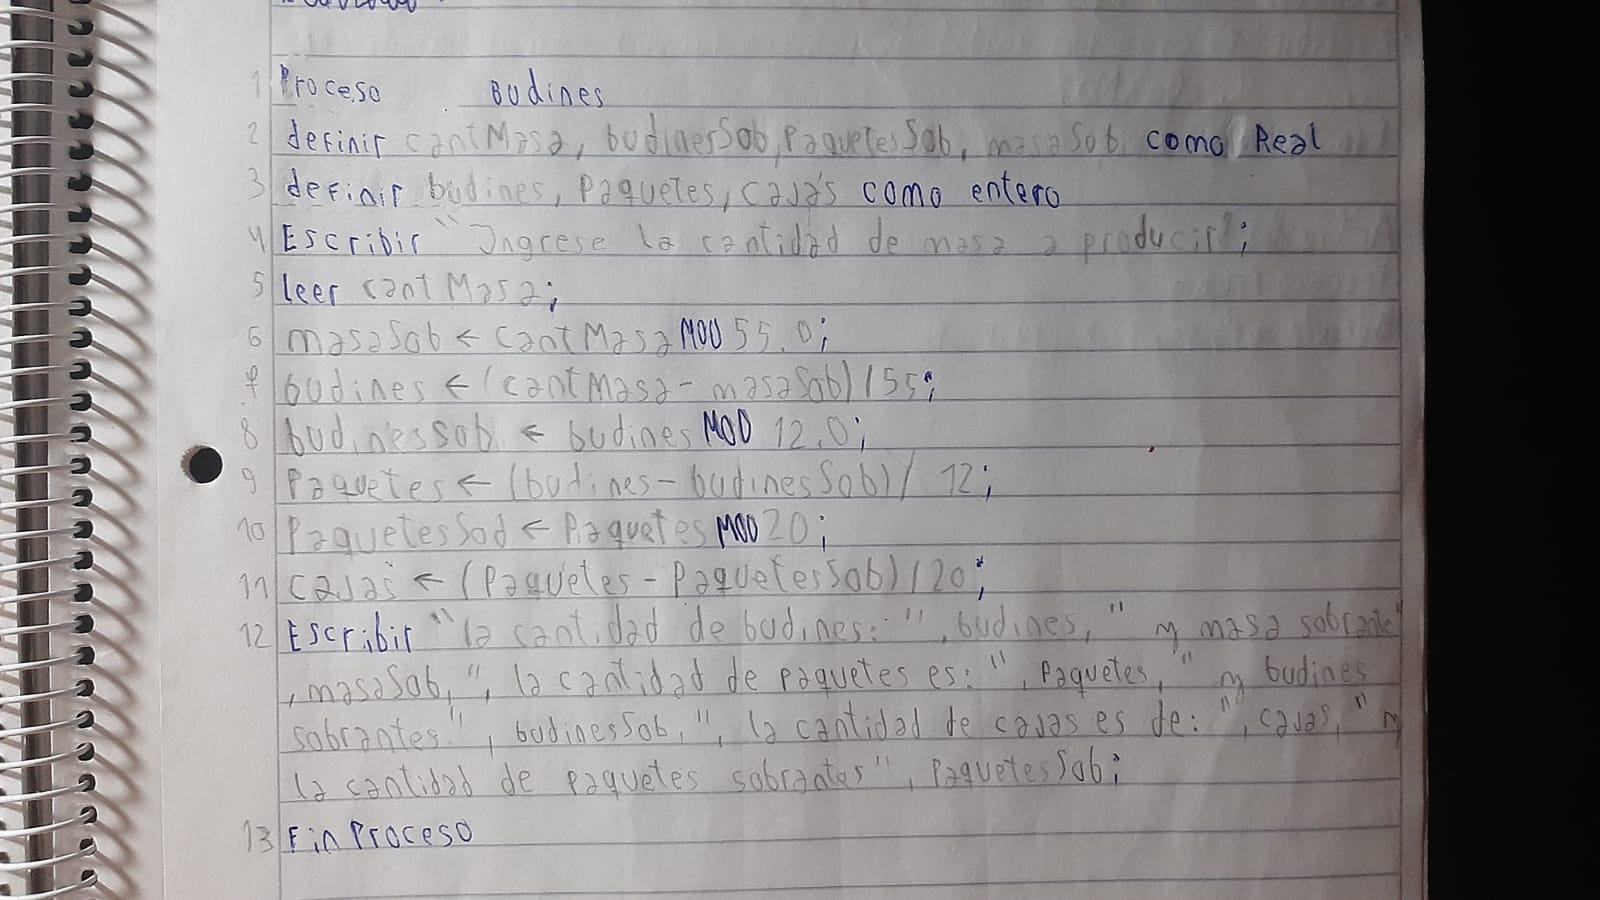 1 Proceso Budines
2 definir cantMasa, budinesSob, PaquetesSob, masaSob como Real
3 definir budines, Paquetes, cajas como entero
4 Escribir "Ingrese la cantidad de masa a producir";
5 leer cantMasa;
6 masaSob ← cantMasa MOD 55.0;
7 budines ← (cantMasa - masaSob) / 55;
8 budinesSob ← budines MOD 12.0;
9 Paquetes ← (budines - budinesSob) / 12;
10 PaquetesSod ← Paquetes MOD 20;
11 cajas ← (Paquetes - PaquetesSob) / 20;
12 Escribir "la cantidad de budines: ", budines, " y masa sobrante"
, masaSob, ", la cantidad de paquetes es: ", Paquetes, " y budines
sobrantes ", budinesSob, ", la cantidad de cajas es de: ", cajas, " y
la cantidad de paquetes sobrantes", PaquetesSob;
13 FinProceso